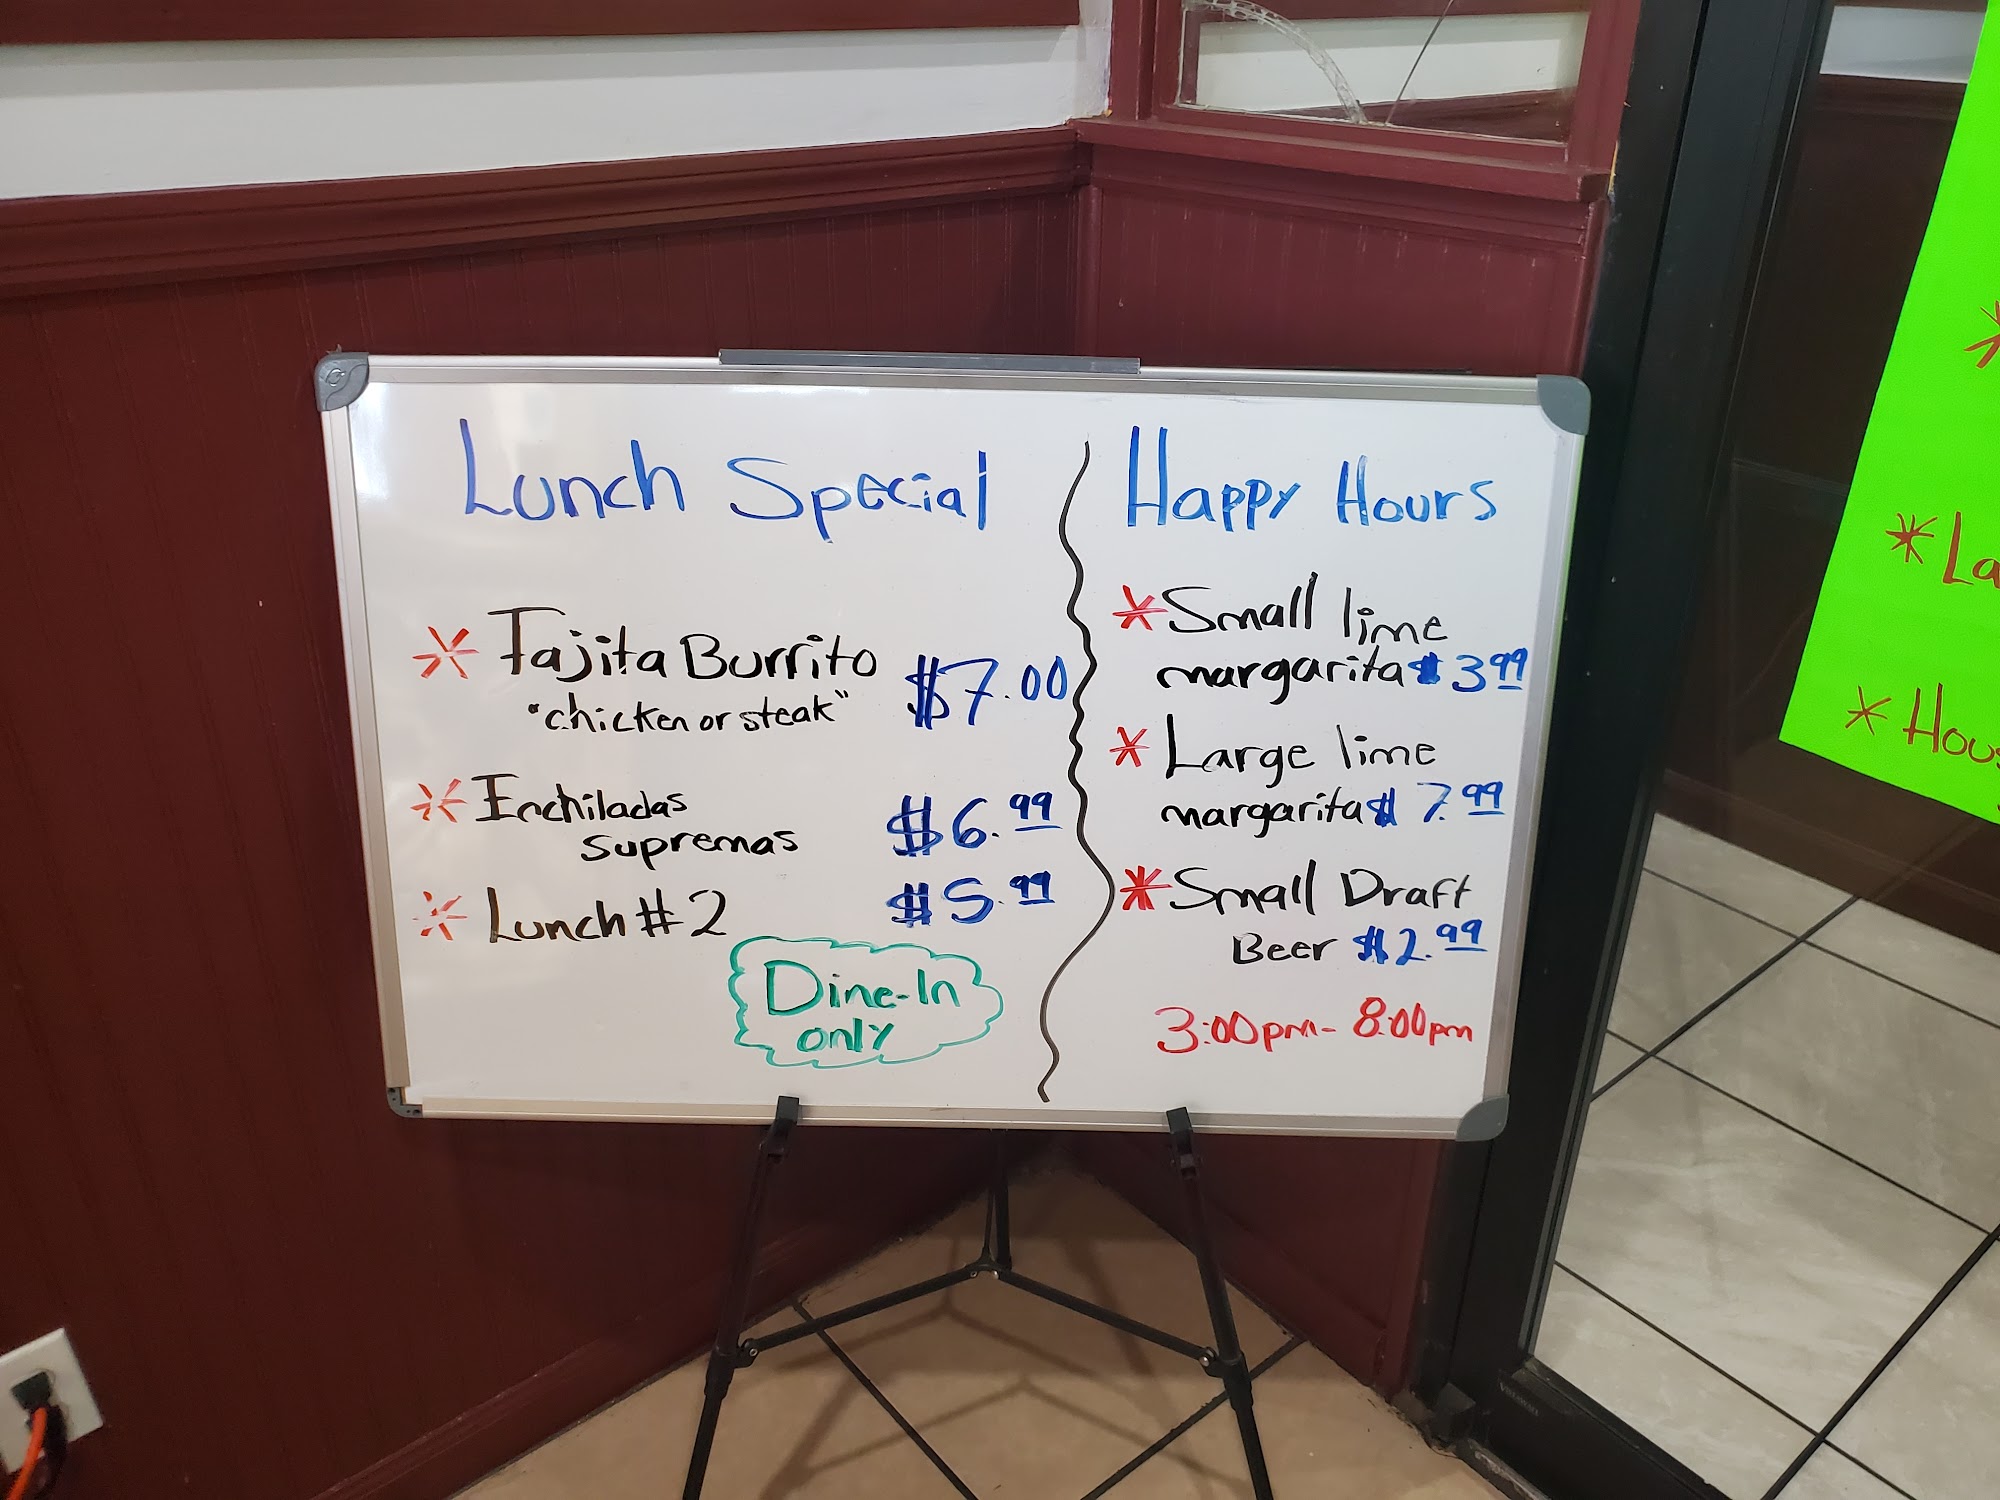 Lunch Special
* Fajita Burrito $7.00
"chicken or steak"
* Enchiladas
supremas $6.99
* Lunch #2 $5.99
Dine-In
only
Happy Hours
* Small lime
margarita $3.99
* Large lime
margarita $7.99
* Small Draft
Beer $2.99
3:00pm - 8:00pm
* La
* Hous